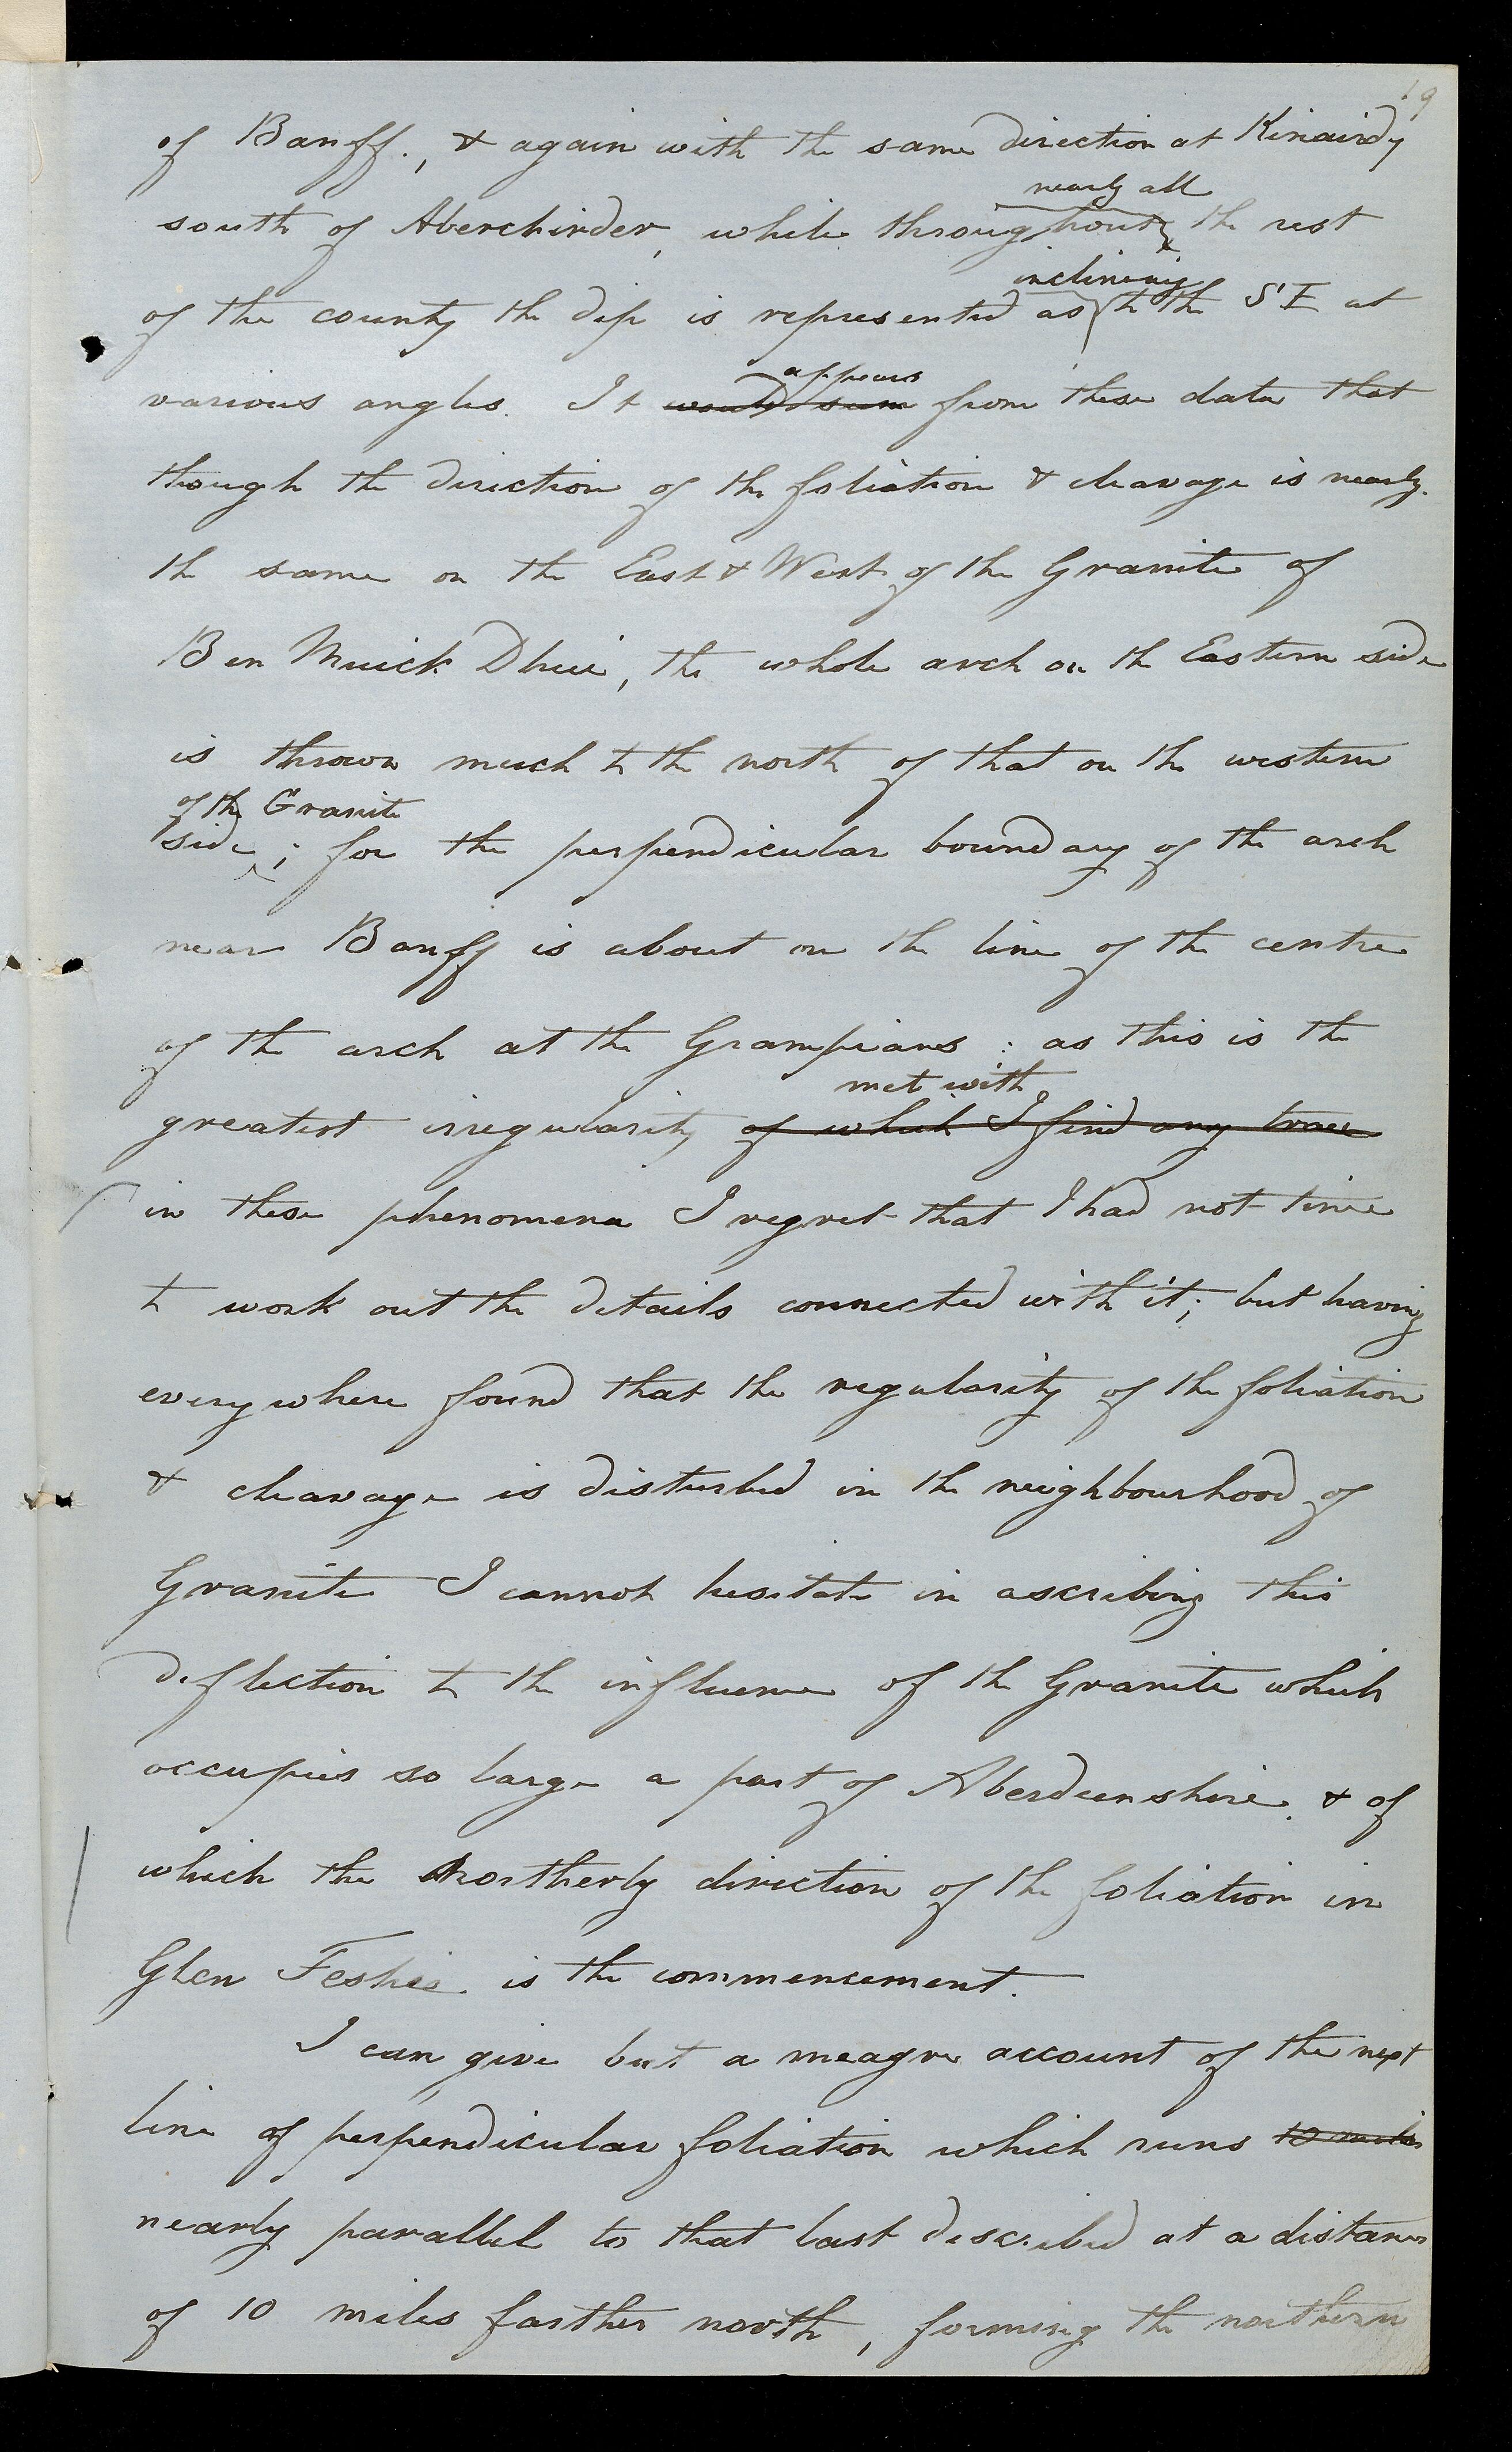 19
of Banff., & again with the same direction at Kinairdy
nearly all
south of Aberchirder, while throughout the rest
inclining
of the county the dip is represented as to the S'E at
appears
various angles. It would seem from these data that
though the direction of the foliation & cleavage is nearly
the same on the East & West of the Granite of
Ben Muick Dhui, the whole arch on the Eastern side
is thrown much to the north of that on the western
of the Granite
side; for the perpendicular boundary of the arch
near Banff is about on the line of the centre
of the arch at the Grampians: as this is the
met with
greatest irregularity of which I find any trace
in these phenomena I regret that I had not time
to work out the details connected with it; but having
everywhere found that the regularity of the foliation
& cleavage is disturbed in the neighbourhood of
Granite I cannot hesitate in ascribing this
deflection to the influence of the Granite which
occupies so large a part of Aberdeenshire. & of
which the Northerly direction of the foliation in
Glen Feshie is the commencement.
I can give but a meagre account of the next
line of perpendicular foliation which runs 10 miles
nearly parallel to that last described at a distance
of 10 miles farther north, forming the northern